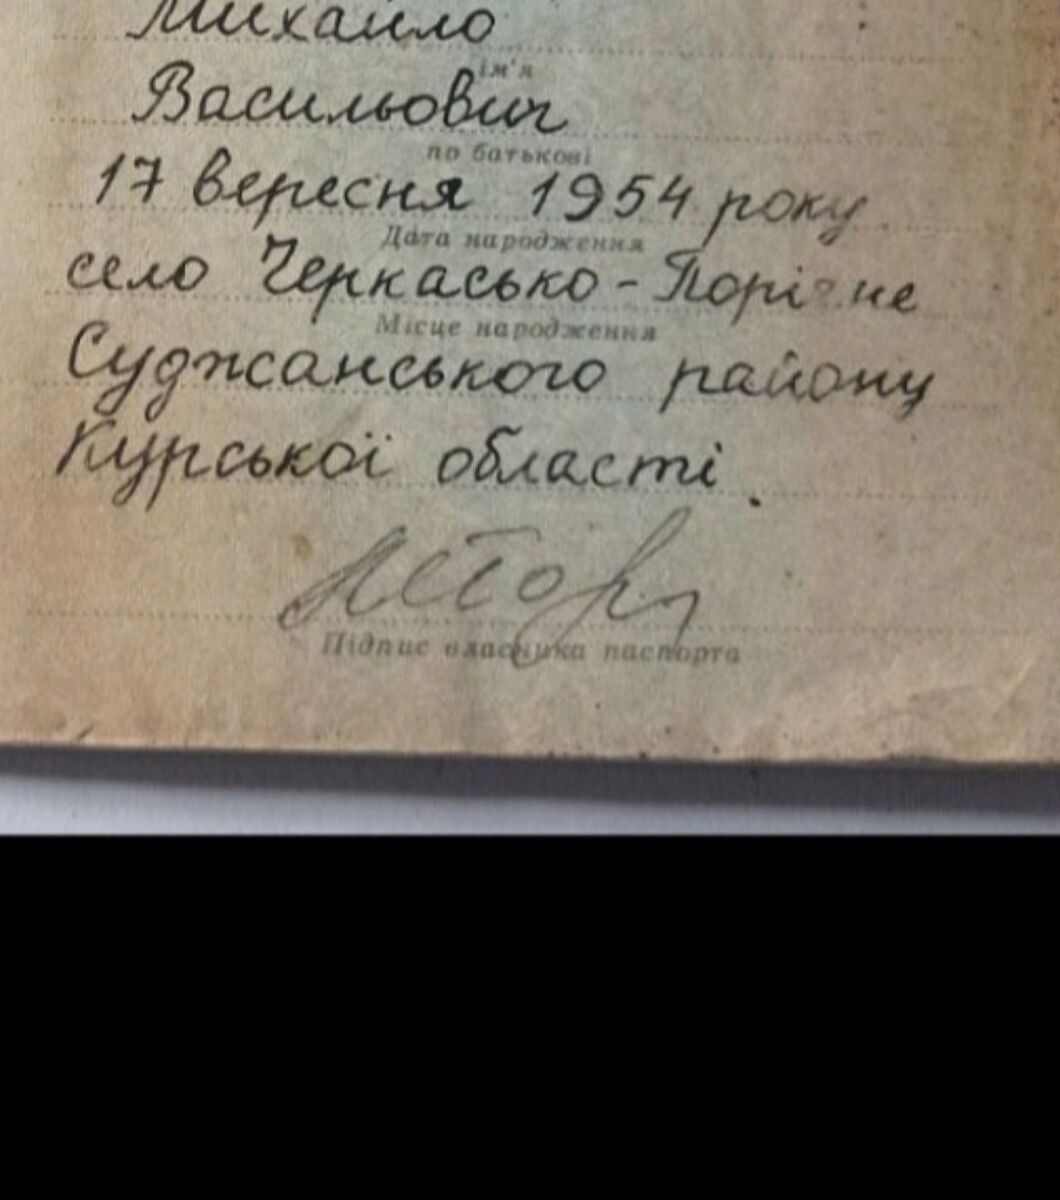 Михайло
ім'я
Васильович
по батькові
17 вересня 1954 року
Дата народження
село Черкасько-Порічне
Місце народження
Суджанського району
Курської області.
Підпис власника паспорта